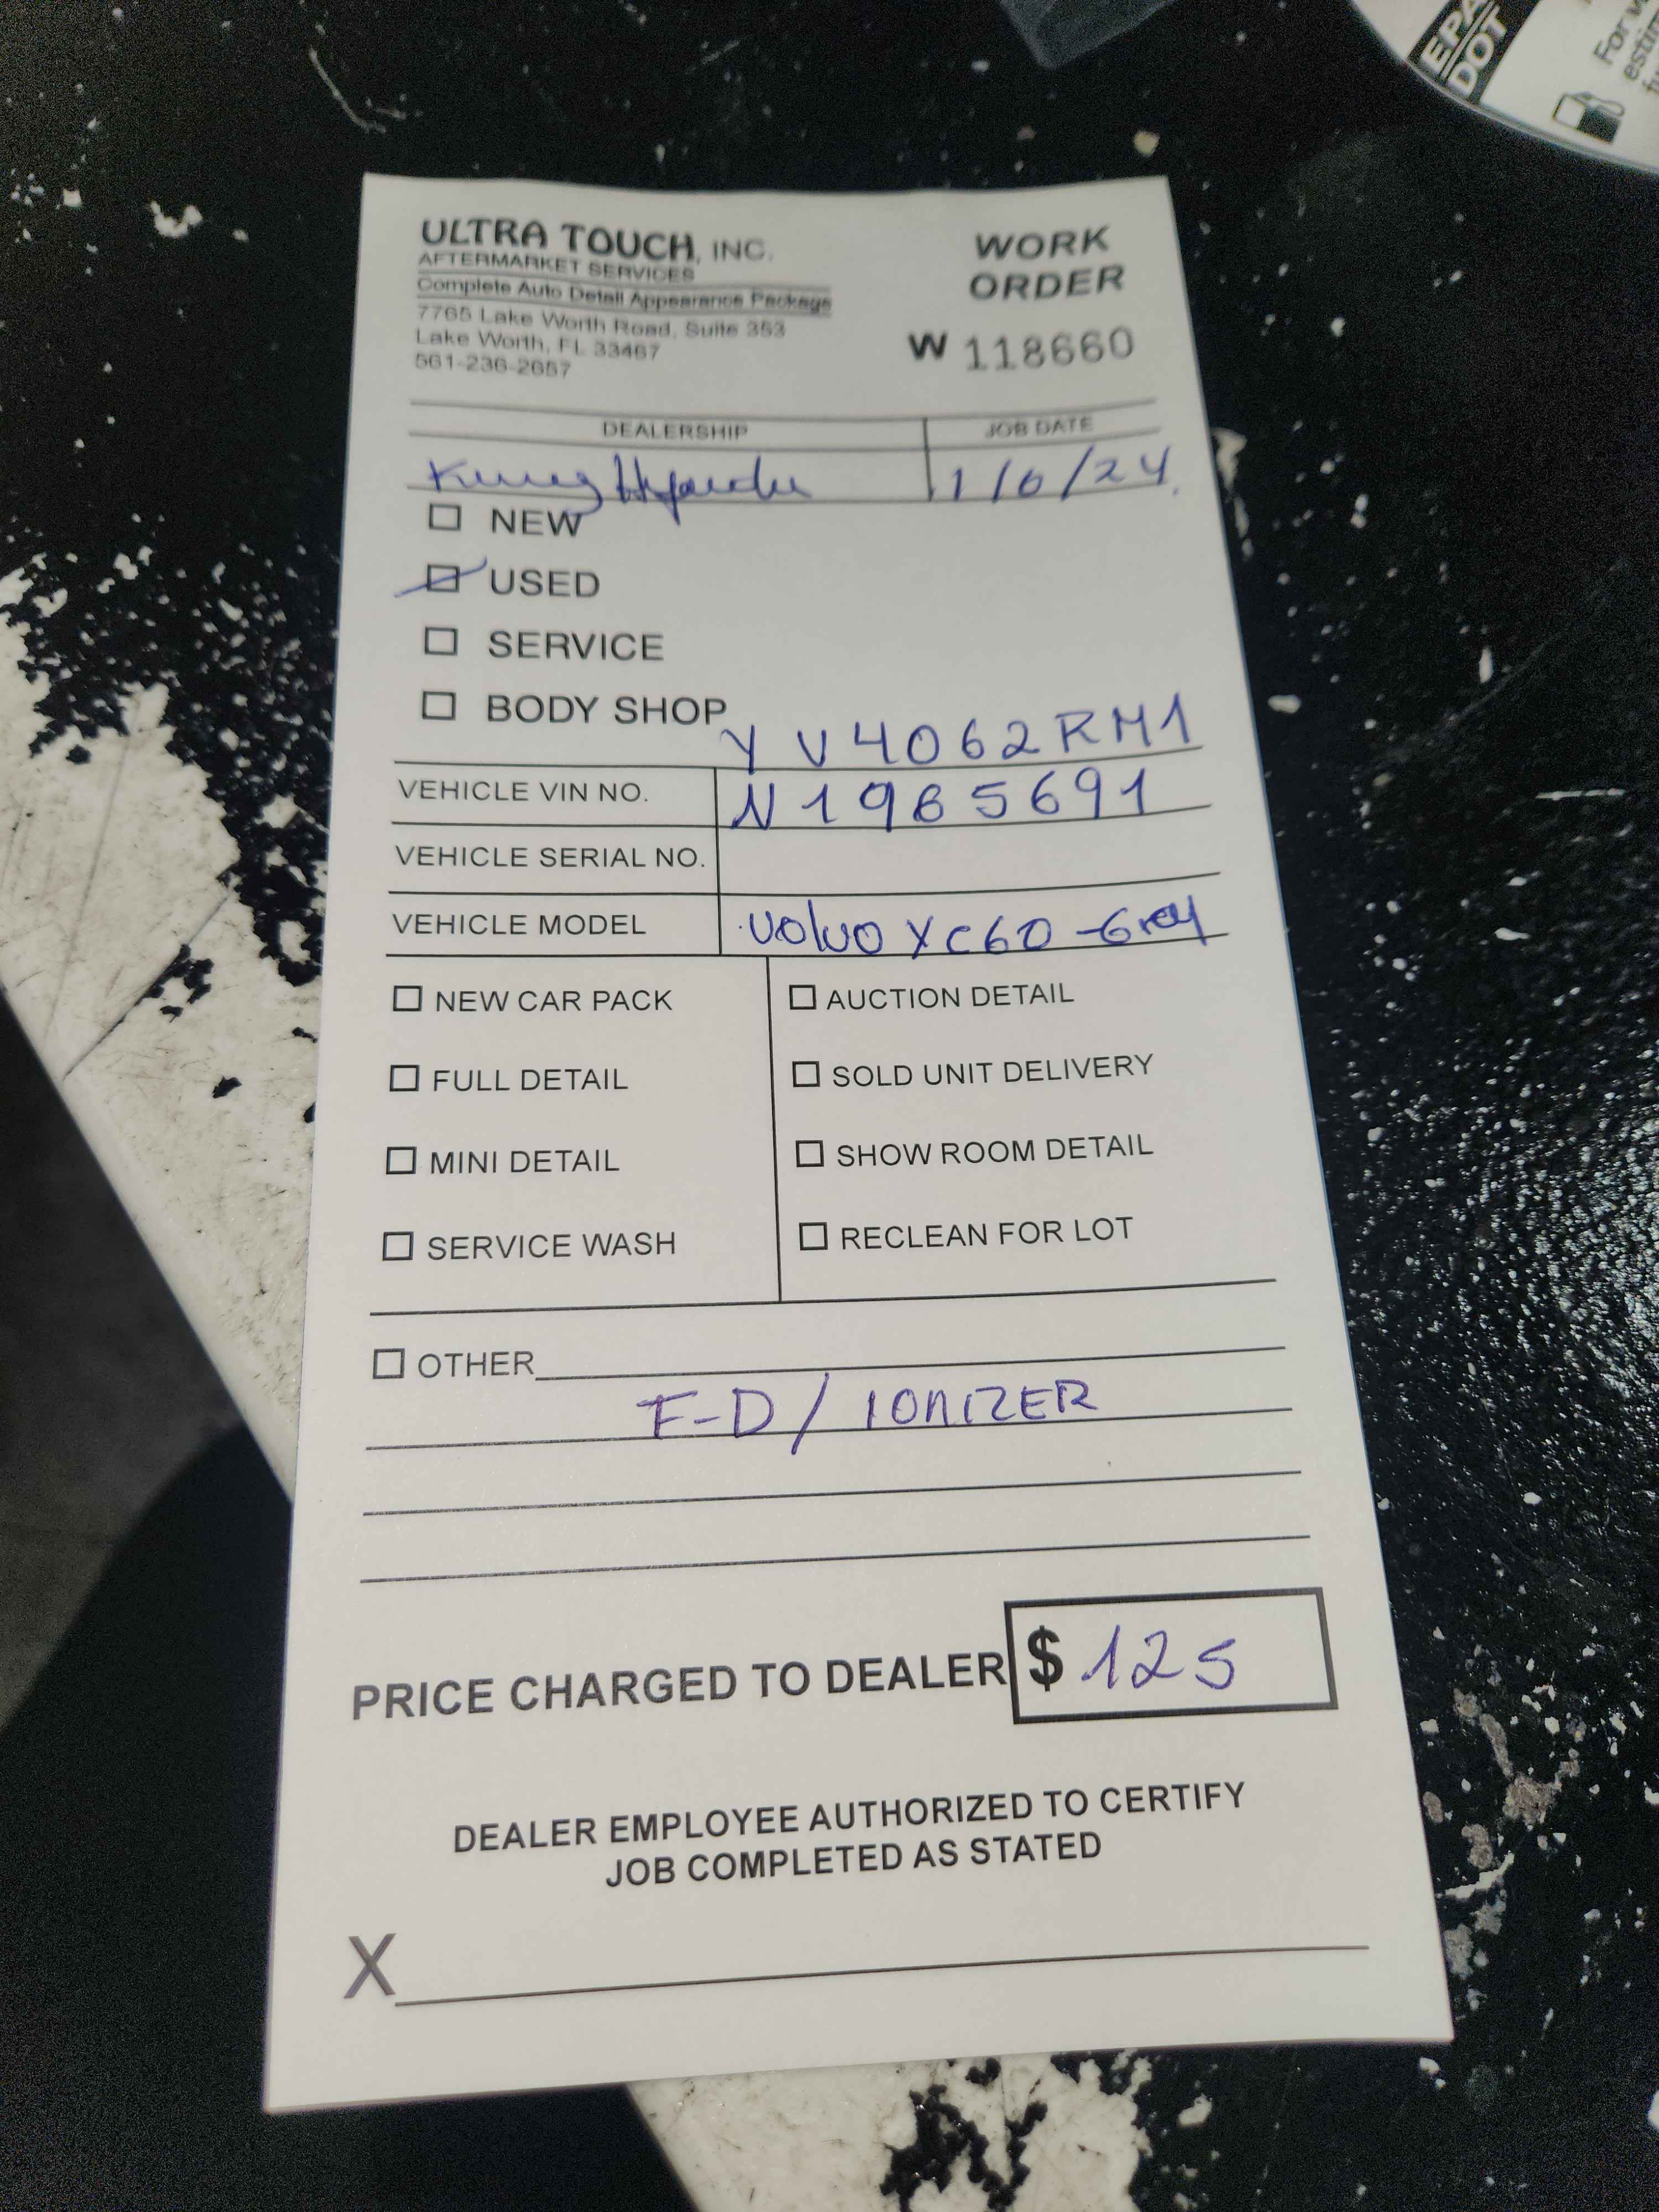 ULTRA TOUCH, INC.
AFTERMARKET SERVICES
Complete Auto Detail Appearance Package
7765 Lake Worth Road, Suite 353
Lake Worth, FL 33467
561-236-2657
WORK
ORDER
W 118660
DEALERSHIP
JOB DATE
1/6/24
NEW
USED
SERVICE
BODY SHOP
YV4062RM1
VEHICLE VIN NO. N1965691
VEHICLE SERIAL NO.
VEHICLE MODEL Volvo XC60 - Grey
NEW CAR PACK
AUCTION DETAIL
FULL DETAIL
SOLD UNIT DELIVERY
MINI DETAIL
SHOW ROOM DETAIL
SERVICE WASH
RECLEAN FOR LOT
OTHER
F-D / IONIZER
PRICE CHARGED TO DEALER $ 125
DEALER EMPLOYEE AUTHORIZED TO CERTIFY
JOB COMPLETED AS STATED
X
EPA
DOT